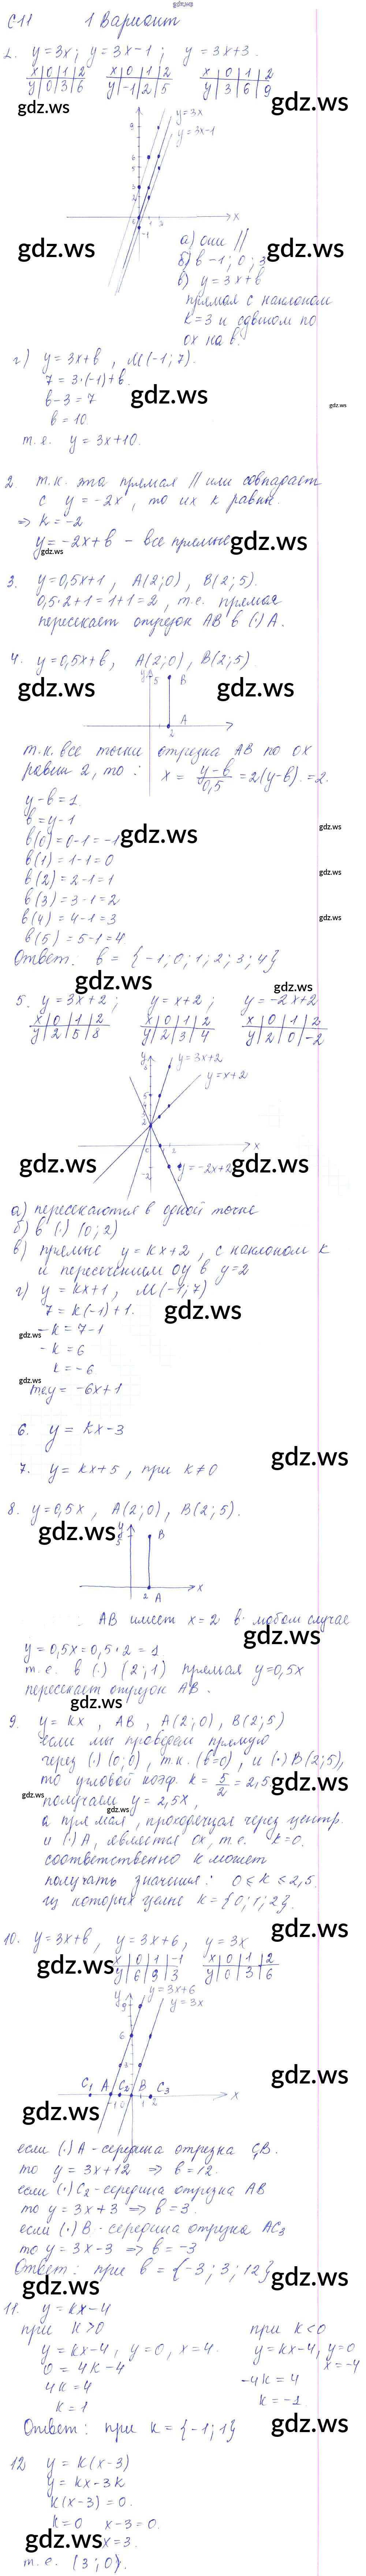 gdz.ws
С-11 1 Вариант
1. y=3x; y=3x-1; y=3x+3.
x|0|1|2 x|0|1|2 x|0|1|2
y|0|3|6 y|-1|2|5 y|3|6|9
gdz.ws gdz.ws
y=3x
y=3x-1
x
а) они ||
gdz.ws gdz.ws
б) b -1; 0; 3
в) y=3x+b
прямая с наклоном
k=3 и сдвигом по
ox на b.
г) y=3x+b, M(-1; 7).
7=3·(-1)+b.
gdz.ws
b-3=7
gdz.ws
b=10.
т.е. y=3x+10.
2. т.к. эта прямая || или совпадает
с y=-2x, то их k равны.
=> k=-2
y=-2x+b - все прямые
gdz.ws gdz.ws
3. y=0,5x+1, A(2;0), B(2;5).
0,5·2+1=1+1=2, т.е. прямая
пересекает отрезок AB в (·) A.
4. y=0,5x+b, A(2;0), B(2;5)
gdz.ws gdz.ws
y 5 B
A
2
т.к. все точки отрезка AB по ox
равны 2, то: x = (y-b)/0,5 = 2(y-b) = 2.
y-b=1.
b=y-1
b(0)=0-1=-1
gdz.ws gdz.ws
b(1)=1-1=0
b(2)=2-1=1
gdz.ws
b(3)=3-1=2
b(4)=4-1=3
gdz.ws
b(5)=5-1=4
Ответ: b={-1; 0; 1; 2; 3; 4}
gdz.ws gdz.ws
5. y=3x+2; y=x+2; y=-2x+2
x|0|1|2 x|0|1|2 x|0|1|2
y|2|5|8 y|2|3|4 y|2|0|-2
y=3x+2
y=x+2
x
y=-2x+2
gdz.ws gdz.ws
а) пересекаются в одной точке
б) в (·) (0; 2)
в) прямые y=kx+2, с наклоном k
и пересечением oy в y=2
г) y=kx+1, M(-1; 7)
7=k(-1)+1.
gdz.ws
-k=7-1
gdz.ws
-k=6
k=-6
gdz.ws
т.е y=-6x+1
6. y=kx-3
gdz.ws
7. y=kx+5, при k≠0
8. y=0,5x, A(2;0), B(2;5).
gdz.ws
y 5 B
2 A x
AB имеет x=2 в любом случае
gdz.ws
y=0,5x=0,5·2=1
т.е. в (·) (2; 1) прямая y=0,5x
пересекает отрезок AB.
gdz.ws
9. y=kx, AB, A(2;0), B(2;5)
если мы проведем прямую
через (·) (0;0), т.к. (b=0), и (·) B(2;5),
то угловой коэф. k=5/2=2,5
gdz.ws gdz.ws
получаем y=2,5x,
gdz.ws
а прямая, проходящая через центр.
и (·) A, является ox, т.е. k=0.
соответственно k может
получать значения: 0≤k≤2,5.
из которых целые k={0; 1; 2}.
10. y=3x+b, y=3x+6, y=3x
gdz.ws gdz.ws
x|0|1|-1 x|0|1|2
y|6|9|3 y|0|3|6
y=3x+6
y=3x
6
C1 A C2 B C3
-1 0 1 2 x
gdz.ws gdz.ws
если (·) A - середина отрезка C1B.
то y=3x+12 => b=12.
если (·) C2 - середина отрезка AB
то y=3x+3 => b=3.
если (·) B - середина отрезка AC3
то y=3x-3 => b=-3
Ответ: при b={-3; 3; 12}
gdz.ws gdz.ws
11. y=kx-4
при k>0 при k<0
y=kx-4, y=0, x=4. y=kx-4, y=0
x=-4
0=4k-4 -4k=4
4k=4 k=-1
k=1
Ответ: при k={-1; 1}
gdz.ws
12. y=k(x-3)
y=kx-3k
k(x-3)=0.
k=0 x-3=0.
x=3.
gdz.ws gdz.ws
т.е. (3; 0).